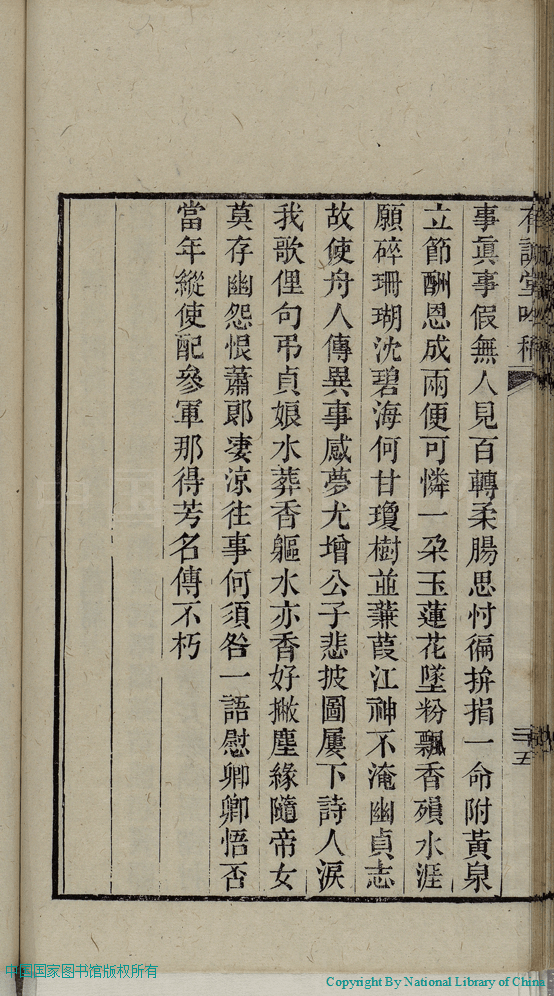 事眞事假無人見百轉柔腸思忖徧拚捐一命附黃泉
立節酬恩成兩便可憐一朶玉蓮花墜粉飄香殞水涯
願碎珊瑚沈碧海何甘瓊樹並蒹葭江神不淹幽貞志
故使舟人傳異事感夢尤增公子悲披圖屢下詩人淚
我歌俚句弔貞娘水葬香軀水亦香好撇塵緣隨帝女
莫存幽怨恨蕭郎淒涼往事何須咎一語慰卿卿悟否
當年縱使配參軍那得芳名傳不朽
中国国家图书馆版权所有
Copyright By National Library of China